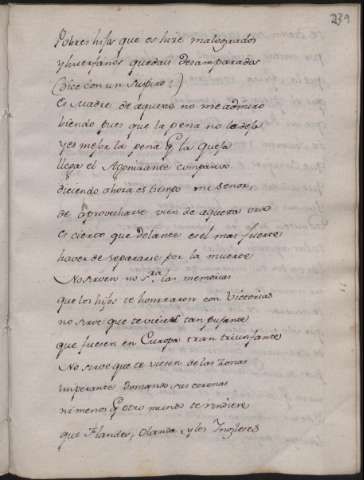 239
Pobres hijos que os hize malogrados
y huerfanos quedais desamparados
(Dice con un suspiro:)
es madre de aquesto no me admiro
viendo pues que la pena no la deja
y es mejor la pena q̃ la queja
llega el Agonizante compasivo
diciendo ahora es tiempo mi señor,
de aprovechar bien de aquesta
es cierto que delante es el mas fuerte
haver de separarse por la muerte
No sirven no Sra. las memorias
que los hijos te honraron con Victorias
no sirve que te vieras tan
que fuesen en Europa tran triunfante
No sirve que te viesen de las Zonas
imperante Domando sus coronas
ni menos q̃ otro mundo te rindiese
que Flandes, Olanda, y los Ingleses